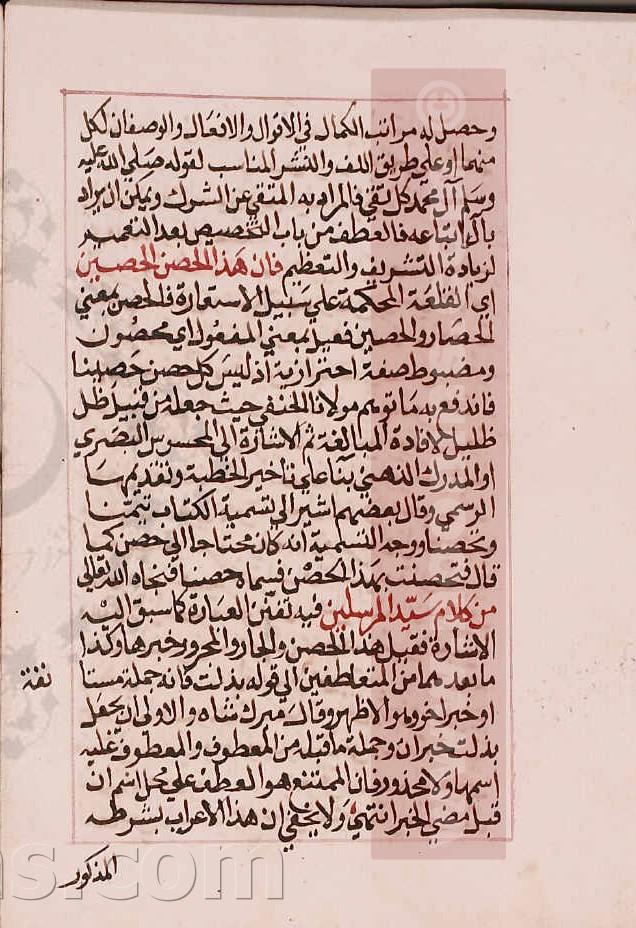 وحصل له مراتب الكمال في الاقوال والافعال والوصفان لكل
منهما او على طريق اللف والنشر المناسب لقوله صلى الله عليه
وسلم آل محمد كل تقي فالمراد به المتقي عن الشرك ويمكن ان يراد
بآله اتباعه فالعطف من باب التخصيص بعد التعميم
لزيادة التشريف والتعظيم فان هذا الحصن الحصين
اي القلعة المحكمة على سبيل الاستعارة فالحصن بمعني
الحصار والحصين فعيل بمعني المفعول اي محصون
ومضبوط صفة احترازية اذ ليس كل حصن حصينا
فاندفع به ما توهم مولانا الحنفي حيث جعله من قبيل ظل
ظليل لافادة المبالغة ثم الاشارة الى المحسوس البصري
او المدرك الذهني بنا علي تاخير الخطبة وتقديمها
الرسمي وقال بعضهم اشير الي تسمية الكتاب تيمنا
وتحصنا ووجه التسمية انه كان محتاجا الي حصن كما
قال فتحصنت بهذا الحصن فسماه حصنا فنجاه الله تعالي
من كلام سيد المرسلين فيه تفنن العبارة كما سبق اليه
الاشارة فقيل هذا الحصن والجار والمجرور خبرها وكذا
ما بعدهما من المتعاطفين الي قوله بذلت فانه جملة مستا
نفة
او خبر اخر وهو الاظهر وقال ميرك شاه والاولى ان يجعل
بذلت خبر ان وجملة ما قبله من المعطوف والمعطوف عليه
اسمها ولا محذور فان الممتنع هو العطف علي محل اسم ان
قبل مضي الخبر انتهي ولا يخفي ان هذا الاعراب بشرطه
المذكور
ns.com